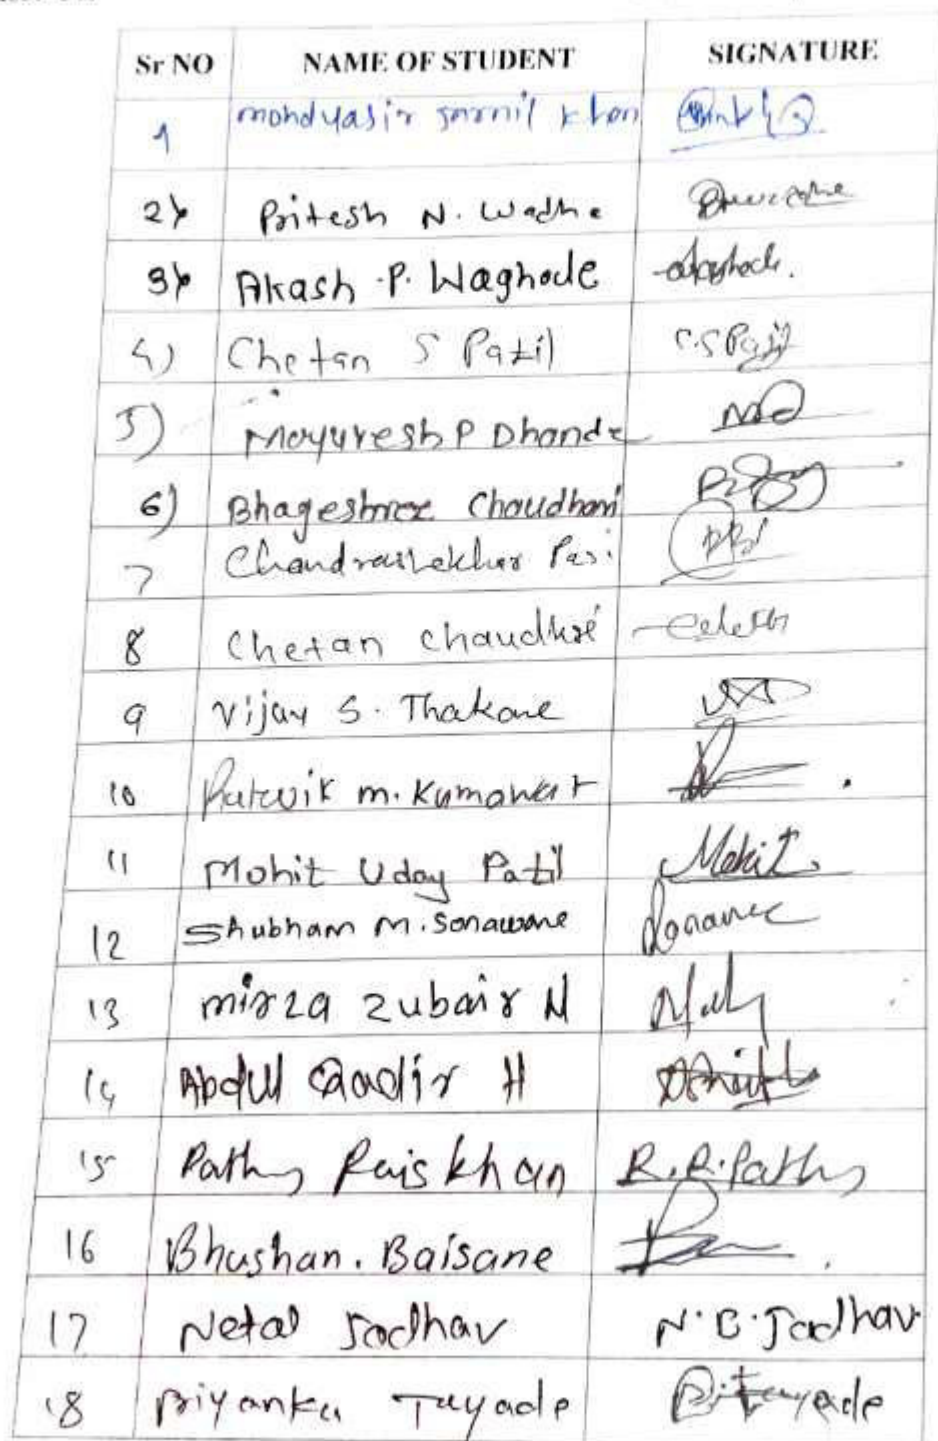 Sr NO NAME OF STUDENT SIGNATURE
1 mohdyasir Jamil khan
2) Pritesh N. Wadhe
3) Akash .P. Waghode
4) Chetan S Patil C.S Patil
5) Mayuresh P Dhande
6) Bhageshree Chaudhari
7 Chandrashekhar
8 Chetan Chaudhari
9 Vijay S. Thakare
10 m. Kumawat
11 Mohit Uday Patil Mohit
12 Shubham M. Sonawane
13 mirza zubair N
14 Abdul Qaadir H
15 Pathan Rais khan R.R. Pathan
16 Bhushan. Baisane
17 Netal Jadhav N.B. Jadhav
18 Priyanka Tayade P. Tayade